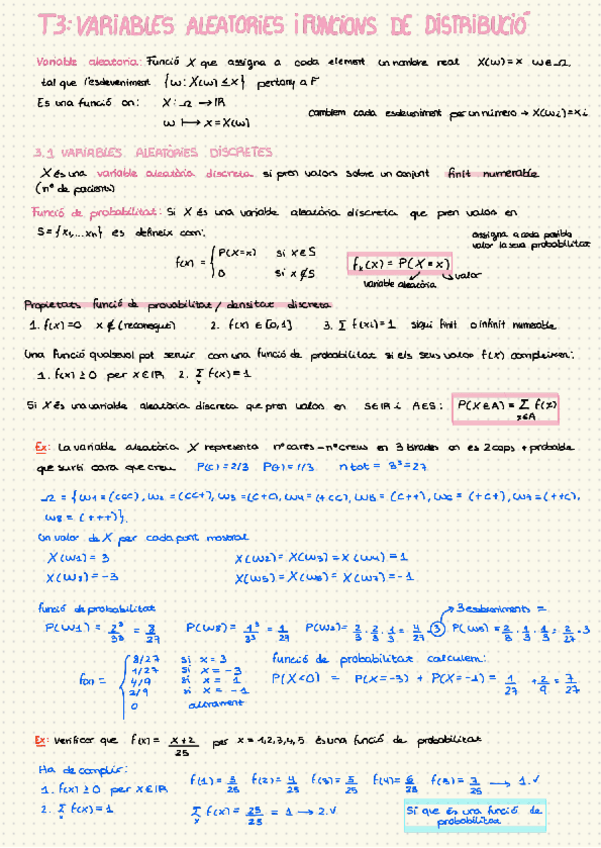 T3: VARIABLES ALEATORIES i FUNCIONS DE DISTRIBUCIÓ
Variable aleatoria: Funció X que assigna a cada element un nombre real X(ω)=x ω∈Ω,
tal que l'esdeveniment {ω: X(ω) ≤ x} pertany a F
Es una funció on: X: Ω → IR
ω ↦ x = X(ω)
canviem cada esdeveniment per un número → X(ωi)=xi
3.1 VARIABLES ALEATÒRIES DISCRETES
X és una variable aleatòria discreta si pren valors sobre un conjunt finit numerable
(nº de pacients)
Funció de probabilitat: Si X és una variable aleatòria discreta que pren valors en
S={x1,...xn} es defineix com:
assigna a cada possible
valor la seva probabilitat
f(x) = { P(X=x) si x∈S
0 si x∉S
fx(x) = P(X = x)
variable aleatòria
valor
Propietats funció de provabilitat / densitat discreta
1. f(x)=0 x∉ (recorregut) 2. f(x) ∈ [0,1] 3. Σ f(xi)=1 sigui finit o infinit numerable
Una funció qualsevol pot servir com una funció de probabilitat si els seus valors f(x) compleixen:
1. f(x) ≥ 0 per x∈IR 2. Σ f(x)=1
x
Si X és una variable aleatòria discreta que pren valors en S∈IR i A∈S: P(X∈A) = Σ f(x)
x∈A
Ex: La variable aleatòria X representa nº cares - nº creus en 3 tirades on es 2 cops + probable
que surti cara que creu P(c)=2/3 P(+)=1/3 n tot = 3³=27
Ω = {ω1=(ccc), ω2=(cc+), ω3=(c+c), ω4=(+cc), ω5=(c++), ω6=(+c+), ω7=(++c),
ω8=(+++)}.
Un valor de X per cada punt mostral
X(ω1) = 3 X(ω2)=X(ω3)=X(ω4)=1
X(ω8) = -3 X(ω5)=X(ω6)=X(ω7)=-1
funció de probabilitat
3 esdeveniments =
P(ω1) = 2³/3³ = 8/27 P(ω8) = 1³/3³ = 1/27 P(ω2)= 2/3 · 2/3 · 1/3 = 4/27 · 3 P(ω5) = 2/3 · 1/3 · 1/3 = 2/27 · 3
f(x) = { 8/27 si x = 3
1/27 si x = -3
4/9 si x = 1
2/9 si x = -1
0 altrament
funció de probabilitat calculem:
P(X<0) = P(X=-3) + P(X=-1) = 1/27 + 2/9 = 7/27
Ex: verificar que f(x) = x+2/25 per x = 1,2,3,4,5 és una funció de probabilitat
Ha de complir:
1. f(x) ≥ 0 per x∈IR f(1)= 3/25 f(2)= 4/25 f(3)= 5/25 f(4)= 6/25 f(5)= 7/25 → 1.✓
2. Σ f(x)=1 Σ f(x) = 25/25 = 1 → 2.✓
x x
Sí que és una funció de
probabilitat